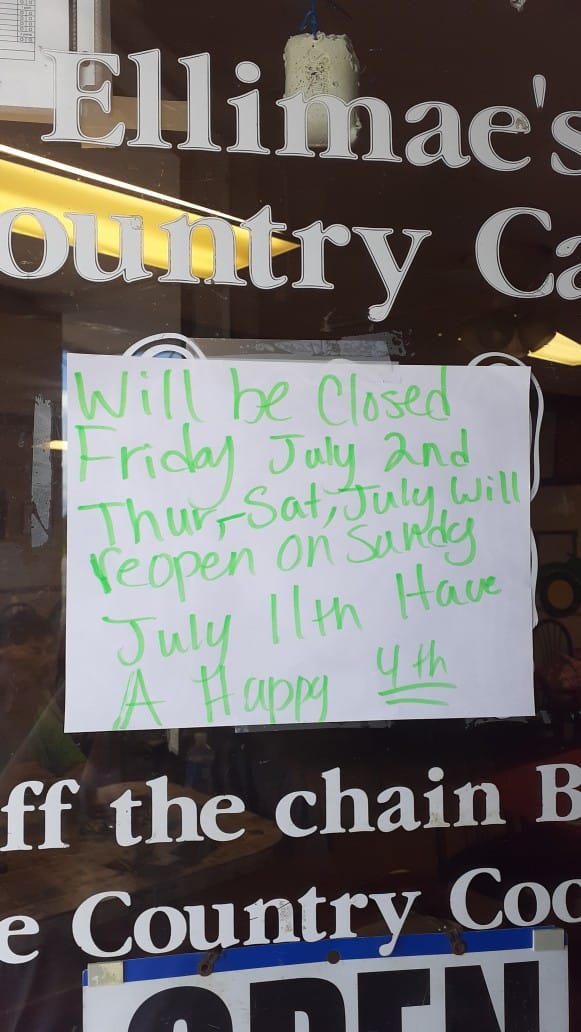 Ellimae's
ountry Ca
Will be Closed
Friday July 2nd
Thur,-Sat, July Will
reopen on Sundy
July 11th Have
A Happy 4th
ff the chain B
e Country Coo
OPEN